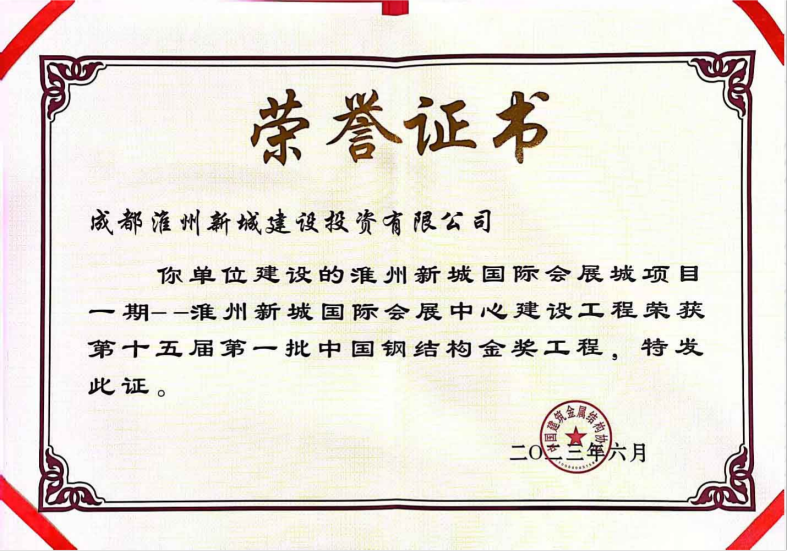 荣誉证书
成都淮州新城建设投资有限公司
你单位建设的淮州新城国际会展城项目
一期--淮州新城国际会展中心建设工程荣获
第十五届第一批中国钢结构金奖工程，特发
此证。
中国建筑金属结构协会
二〇二三年六月